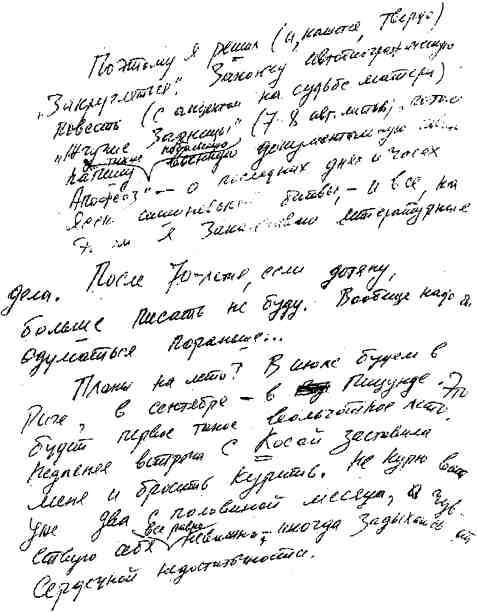 Поэтому я решил (и, кажется, твердо)
"Закруглиться". Закончу автобиографическую
повесть (с акцентом на судьбе матери)
"Жгучие зарницы" (7-8 авт. листов), потом
напишу небольшую военную документальную
Апофеоз" – о последних днях и часах
битвы, – и все, на
этом я заканчиваю литературные
дела. После 70-летия, если дотяну,
больше писать не буду. Вообще надо
одуматься пораньше...
Планы на лето? В июле будем в
Риге, в сентябре – в Пицунде. Это
будет первое такое вольготное лето.
Недавняя встреча с Косой заставила
меня и бросить курить. Не курю вот
уже два с половиной месяца, а чув-
ствую себя все равно неважно, иногда задыхаюсь от
сердечной недостаточности.